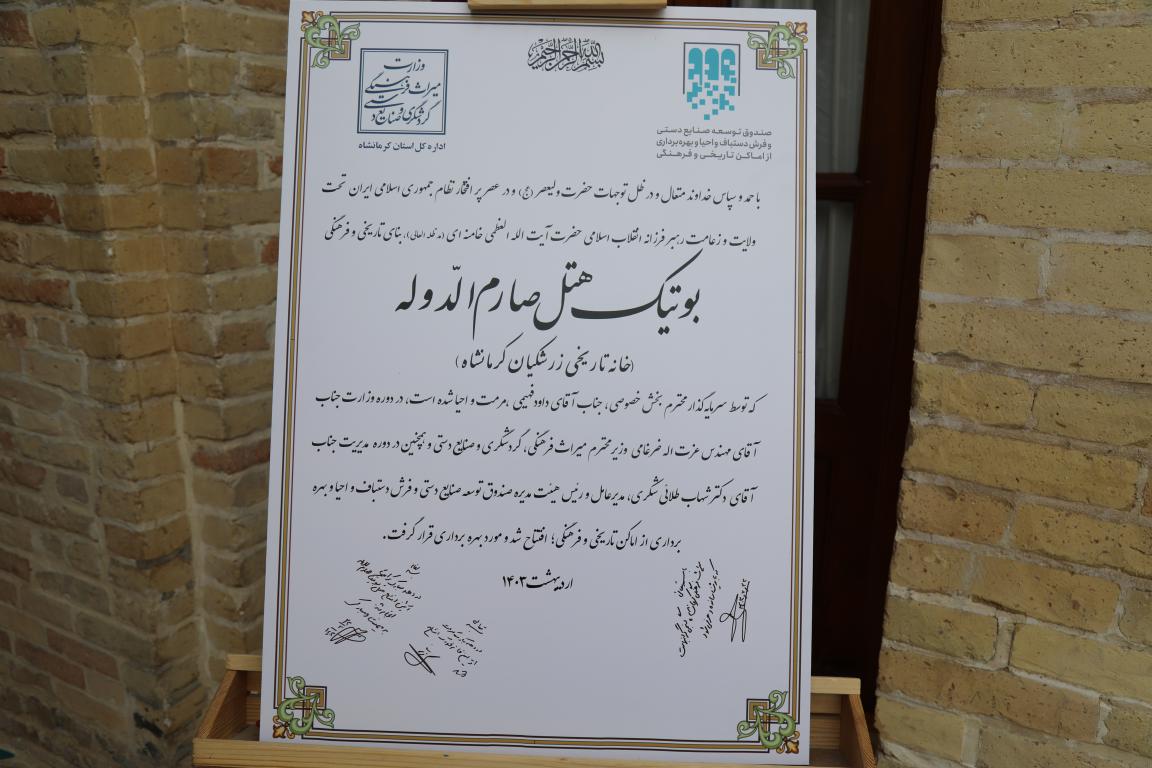 بسم الله الرحمن الرحیم
وزارت
میراث فرهنگی
گردشگری و صنایع دستی
اداره کل استان کرمانشاه
صندوق توسعه صنایع دستی
و فرش دستباف و احیا و بهره برداری
از اماکن تاریخی و فرهنگی
با حمد و سپاس خداوند متعال و در ظل توجهات حضرت ولیعصر (عج) و در عصر پر افتخار نظام جمهوری اسلامی ایران تحت
ولایت و زعامت رهبر فرزانه انقلاب اسلامی حضرت آیت الله العظمی خامنه ای (مد ظله العالی)، بنای تاریخی و فرهنگی
بوتیک هتل صارم الدّوله
(خانه تاریخی زرشکیان کرمانشاه)
که توسط سرمایه گذار محترم بخش خصوصی، جناب آقای داود فهیمی ،مرمت و احیا شده است، در دوره وزارت جناب
آقای مهندس عزت اله ضرغامی وزیر محترم میراث فرهنگی، گردشگری و صنایع دستی و همچنین در دوره مدیریت جناب
آقای دکتر شهاب طلائی شکری، مدیرعامل و رئیس هیئت مدیره صندوق توسعه صنایع دستی و فرش دستباف و احیا و بهره
برداری از اماکن تاریخی و فرهنگی؛ افتتاح شد و مورد بهره برداری قرار گرفت.
اردیبهشت ۱۴۰۳